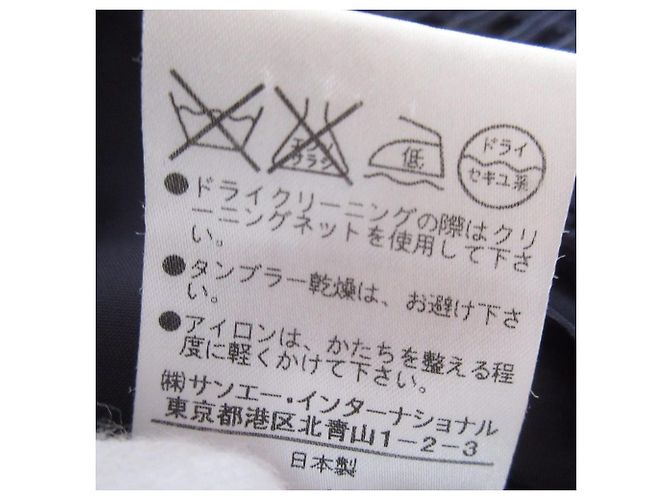 エンソ
サラシ
低
ドライ
セキユ系
●ドライクリーニングの際はクリ
ーニングネットを使用して下さ
い。
●タンブラー乾燥は、お避け下さ
い。
●アイロンは、かたちを整える程
度に軽くかけて下さい。
㈱サンエー・インターナショナル
東京都港区北青山1-2-3
日本製